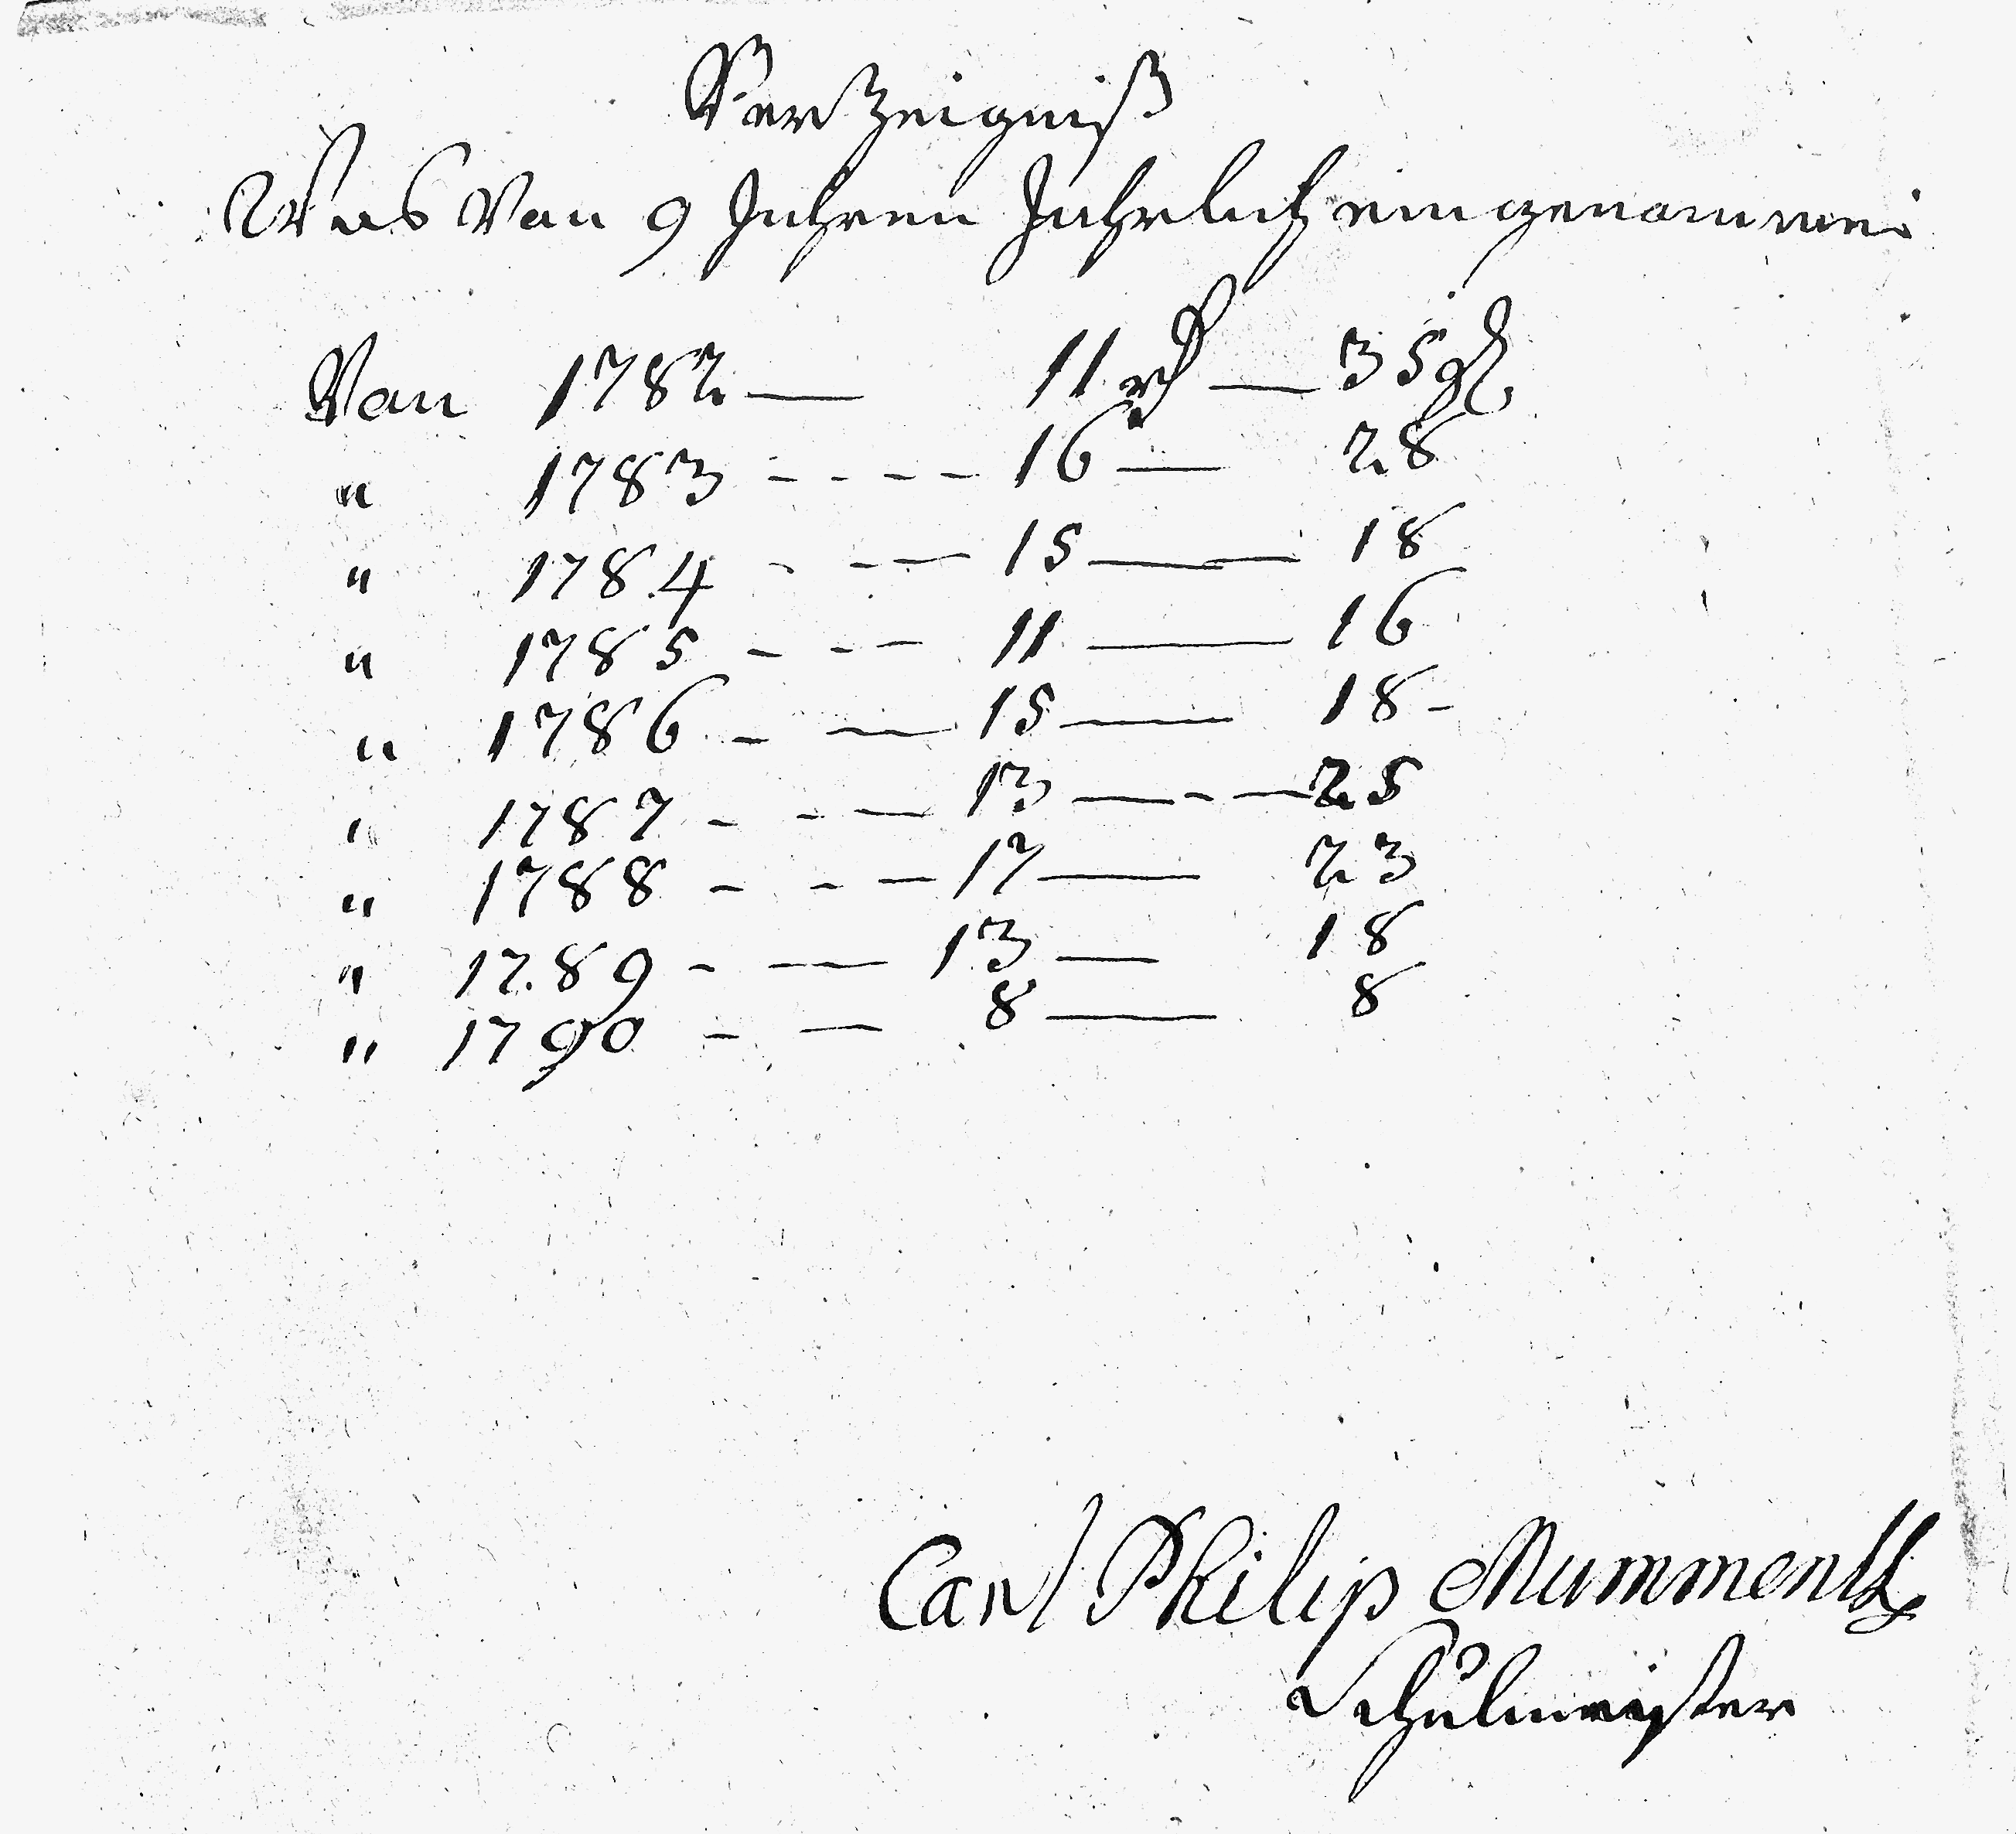 Verzeigniß
Was Von 9 Jahren Jahrlich eingenommen
Von 1782 — 11 rth — 35 gl
" 1783 - - - - 16 — 28
" 1784 - - — 15 — 18
" 1785 - - - 11 — 16
" 1786 - — 15 — 18 -
" 1787 - - — 13 — - — 25
" 1788 - - — 17 — 23
" 1789 - — 13 — 18
" 1790 - — 8 — 8
Carl Philip Mummenth
Schulmeister